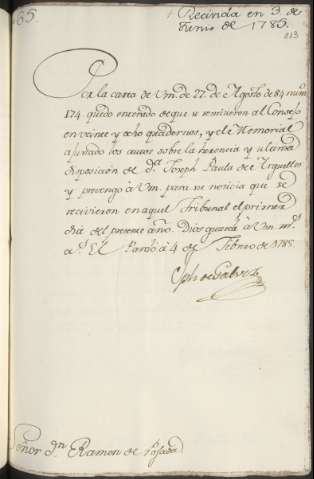 65.
Recivida en 3 de
Junio de 1785.
213
Por la carta de Vm. de 27. de Agosto de 84 num.
174. quedo enterado de que se remitieron al Consejo
en veinte y ocho quadernos, y el de Memorial
ajustado los autos sobre la herencia y ultima
disposicion de Dn. Joseph Paula de Arguellos
y prevengo à Vm. para su noticia que se
recivieron en aquel Tribunal el primer
dia del presente año. Dios guarde à Vm. ms.
as. El Pardo à 4 de Febrero de 1785
Jph de Galvez
Señor Dn. Ramon de Posada